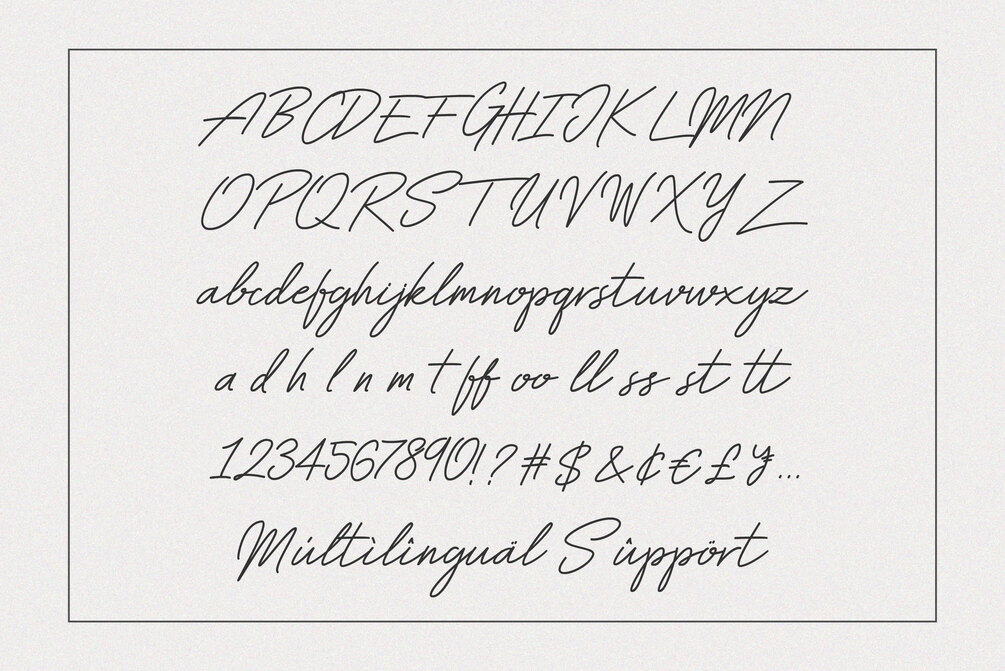 ABCDEFGHIJKLMN
OPQRSTUVWXYZ
abcdefghijklmnopqrstuvwxyz
a d h l n m t ff oo ll ss st tt
1234567890!?#$&¢€£¥...
Múltìlîinguäl Sûppört